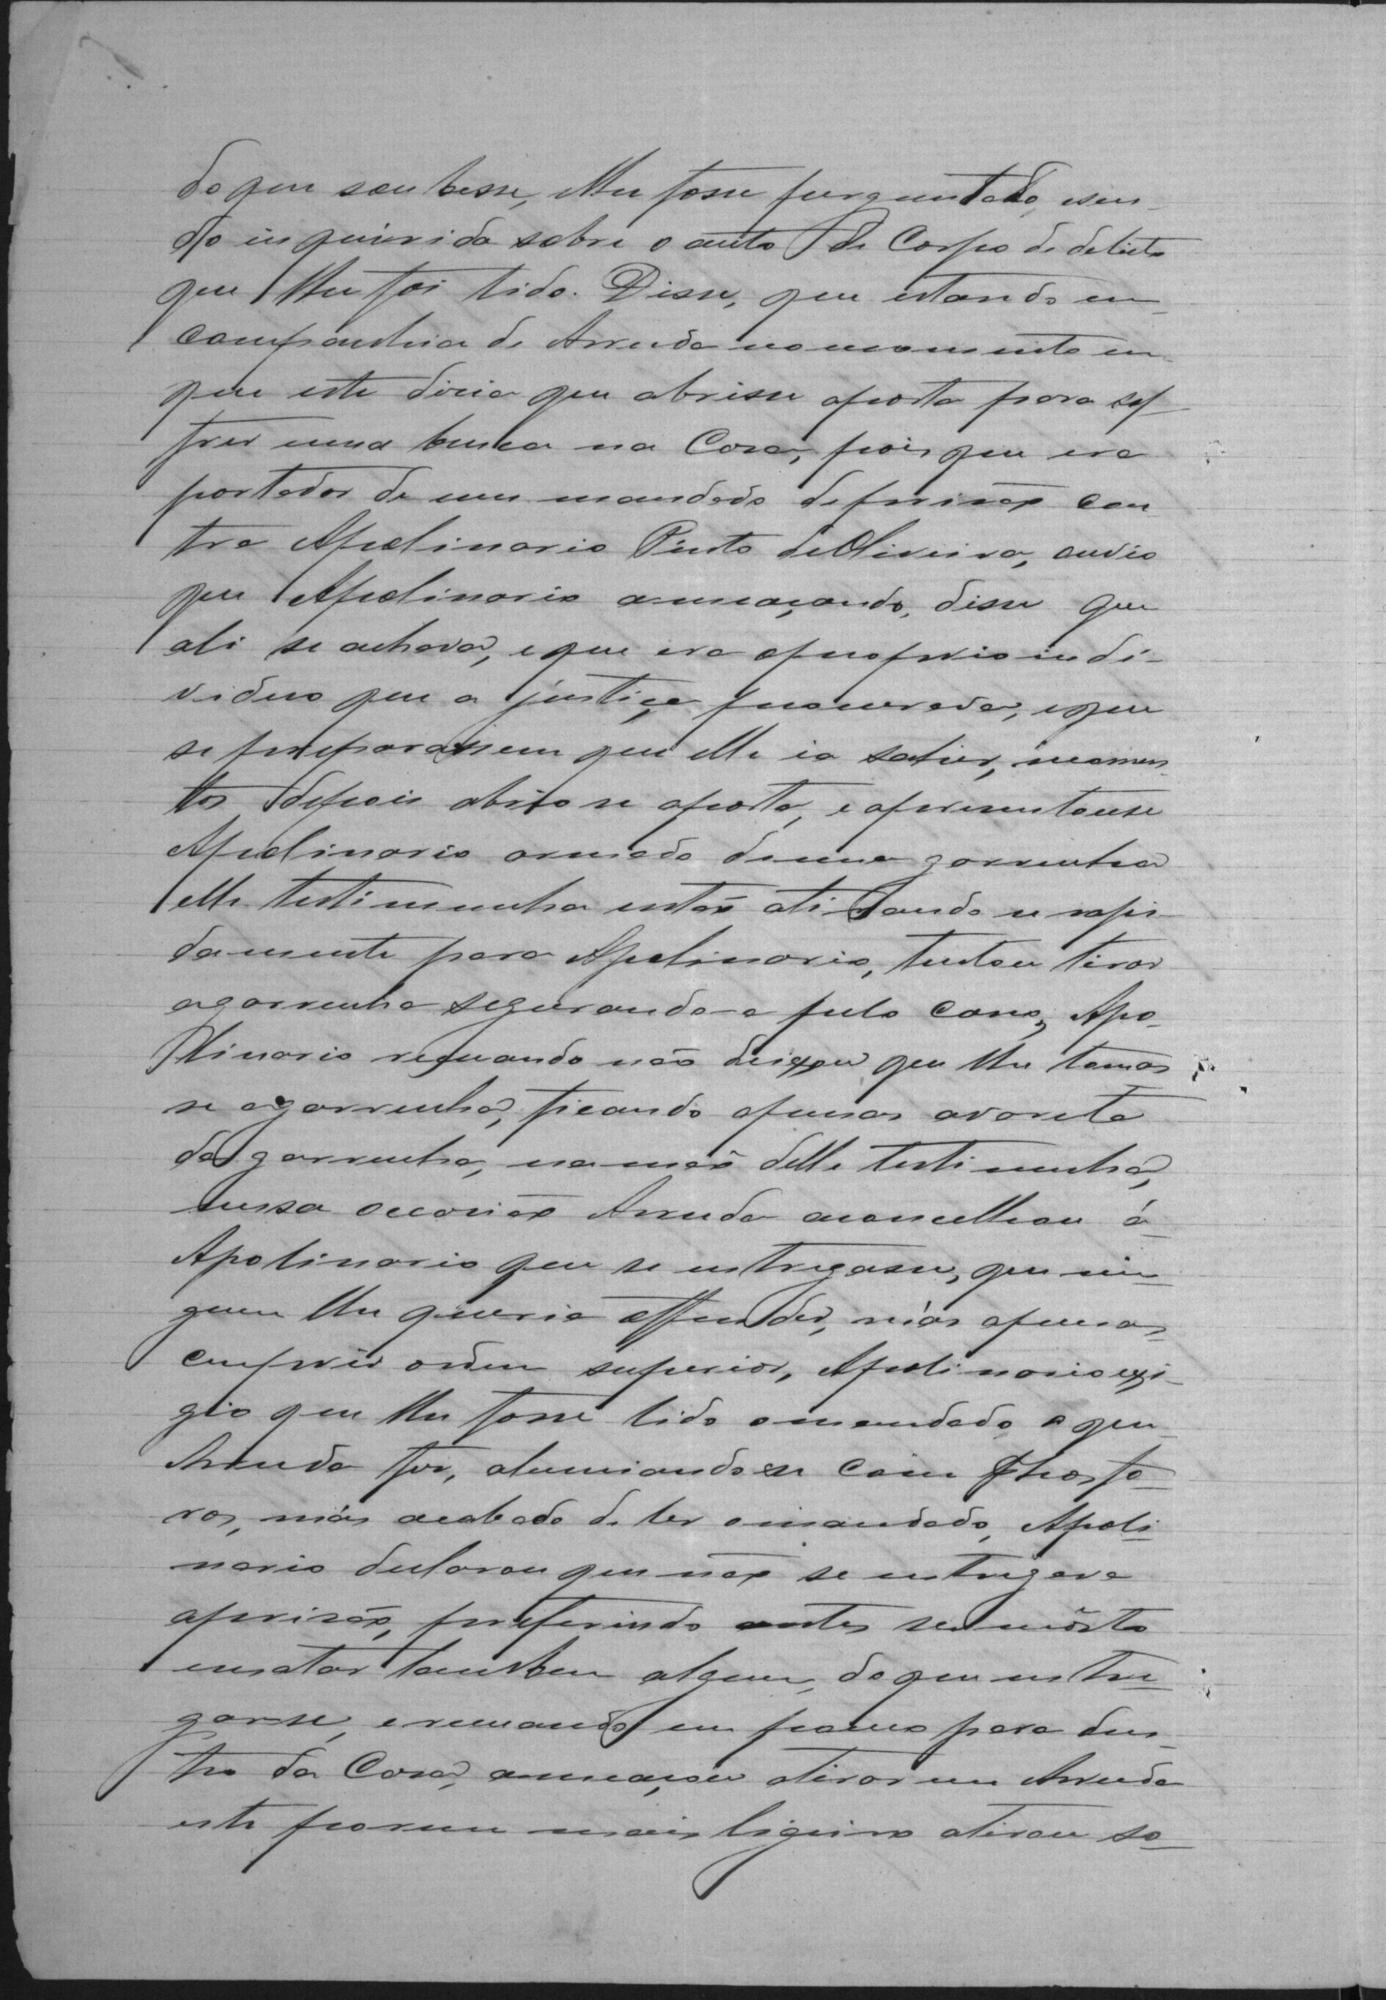 do que soubesse, e lhe fosse perguntado, e sen-
do inquirida sobre o auto de Corpo de delicto
que lhe foi lido. Disse, que estando em
companhia de Arruda no momento em
que este dicia que abrisse aporta para sof-
frer uma busca na Casa, pois que era
portador de um mandado deprisão con
tra Apolinario Pinto deOliveira, ouvio
que Apolinario ameaçando, disse que
ali se achava, eque era oproprio indi-
viduo que a justiça procurava, eque
se preparassem que elle ia sahir, momen
tos depois abrio se aporta, e apresentouse
Apolinario armado deuma garrucha
elle testimunha então atirando se rapi-
damente para Apolinario, tentou tirar
agarrucha segurando-a pelo cano, Apo-
linario recuando não deixou que lhe tomas
se agarrucha, ficando apenas avareta
da garrucha, namão delle testimunha,
nessa occasião Arruda aconcelhou á
Apolinario que se entregasse, que nin-
guem lhe queria offender, más apenas
cumprir ordem superior, Apolinario exi-
gio que lhe fosse lido omandado o que
Arruda fez, alumiando se com Phosfo-
ros, más acabado de ler omandado, Apoli-
nario declarou que não se entregava
aprisão, preferindo antes ser mórto
ematar tambem alguem, do que entre-
garse, erecuando um pouco para den-
tro da Casa, ameaçou atirar em Arruda
este porem mais ligeiro atirou so-